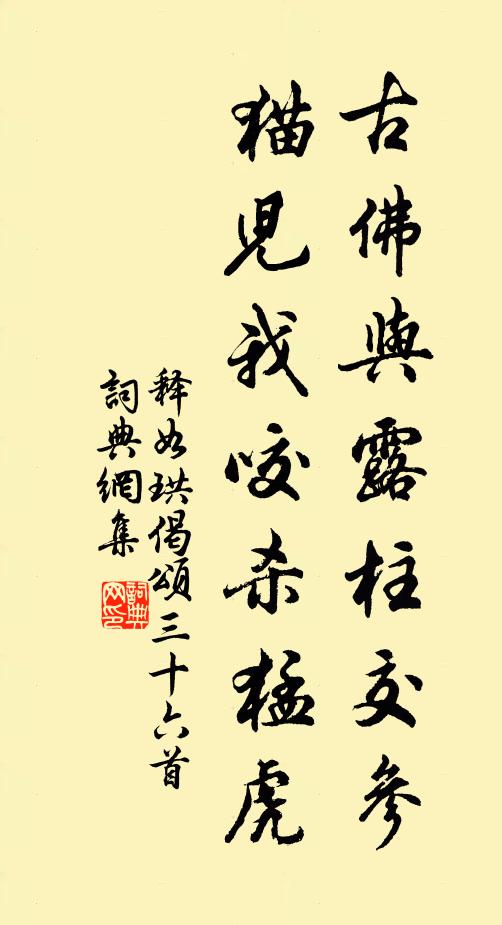 古佛與露柱交參
猫児我咬杀猛虎
释如珙偈頌三十六首
詞典網集
詞典
网印